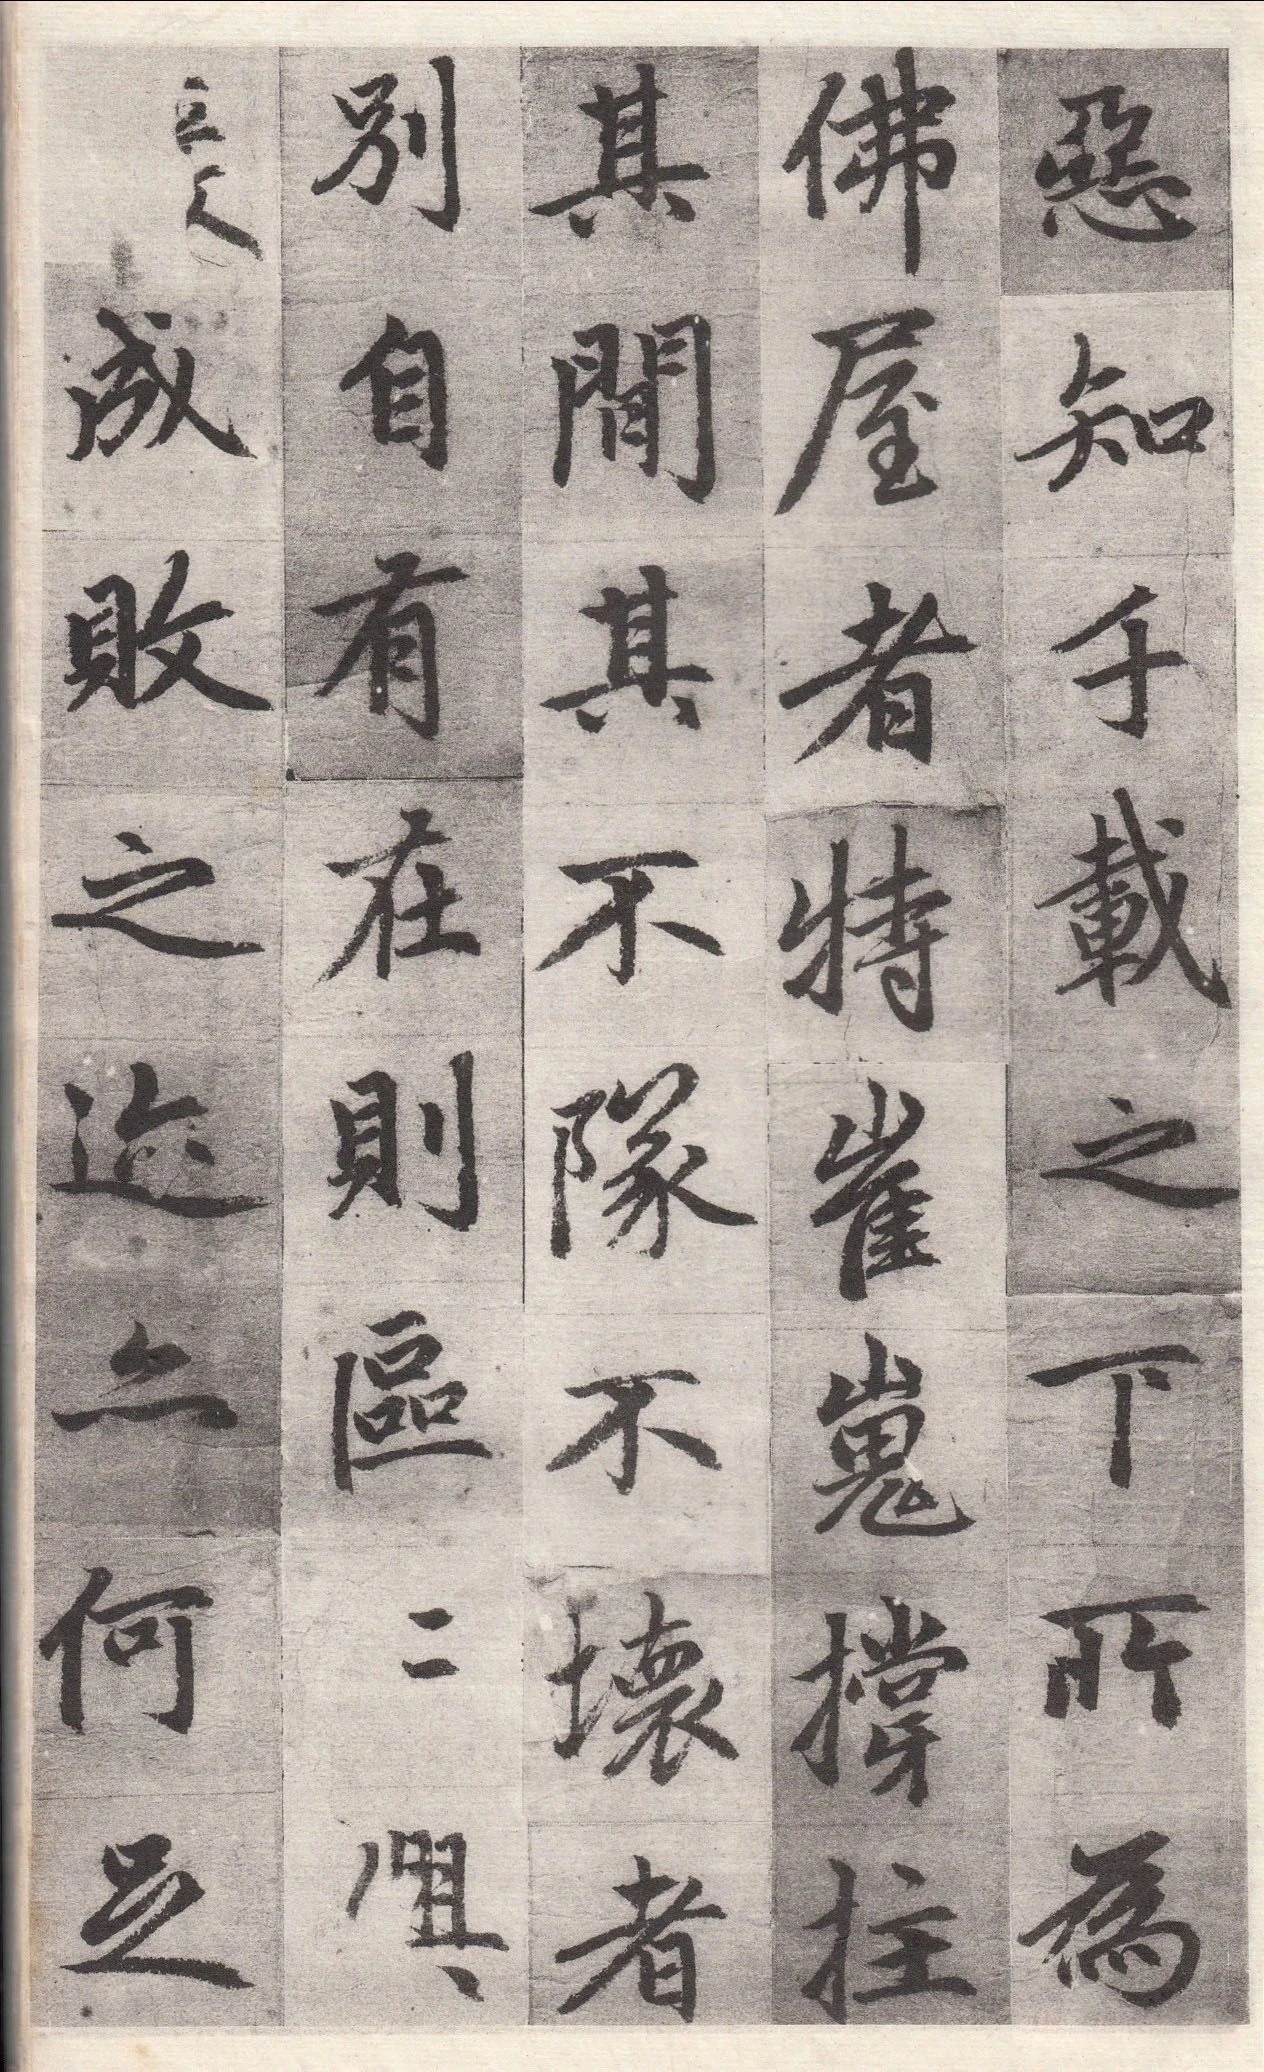 惡知千載之下所為
佛屋者特崔嵬撐拄
其間其不隊不壞者
別自有在則區〻興
成敗之迹亦何足